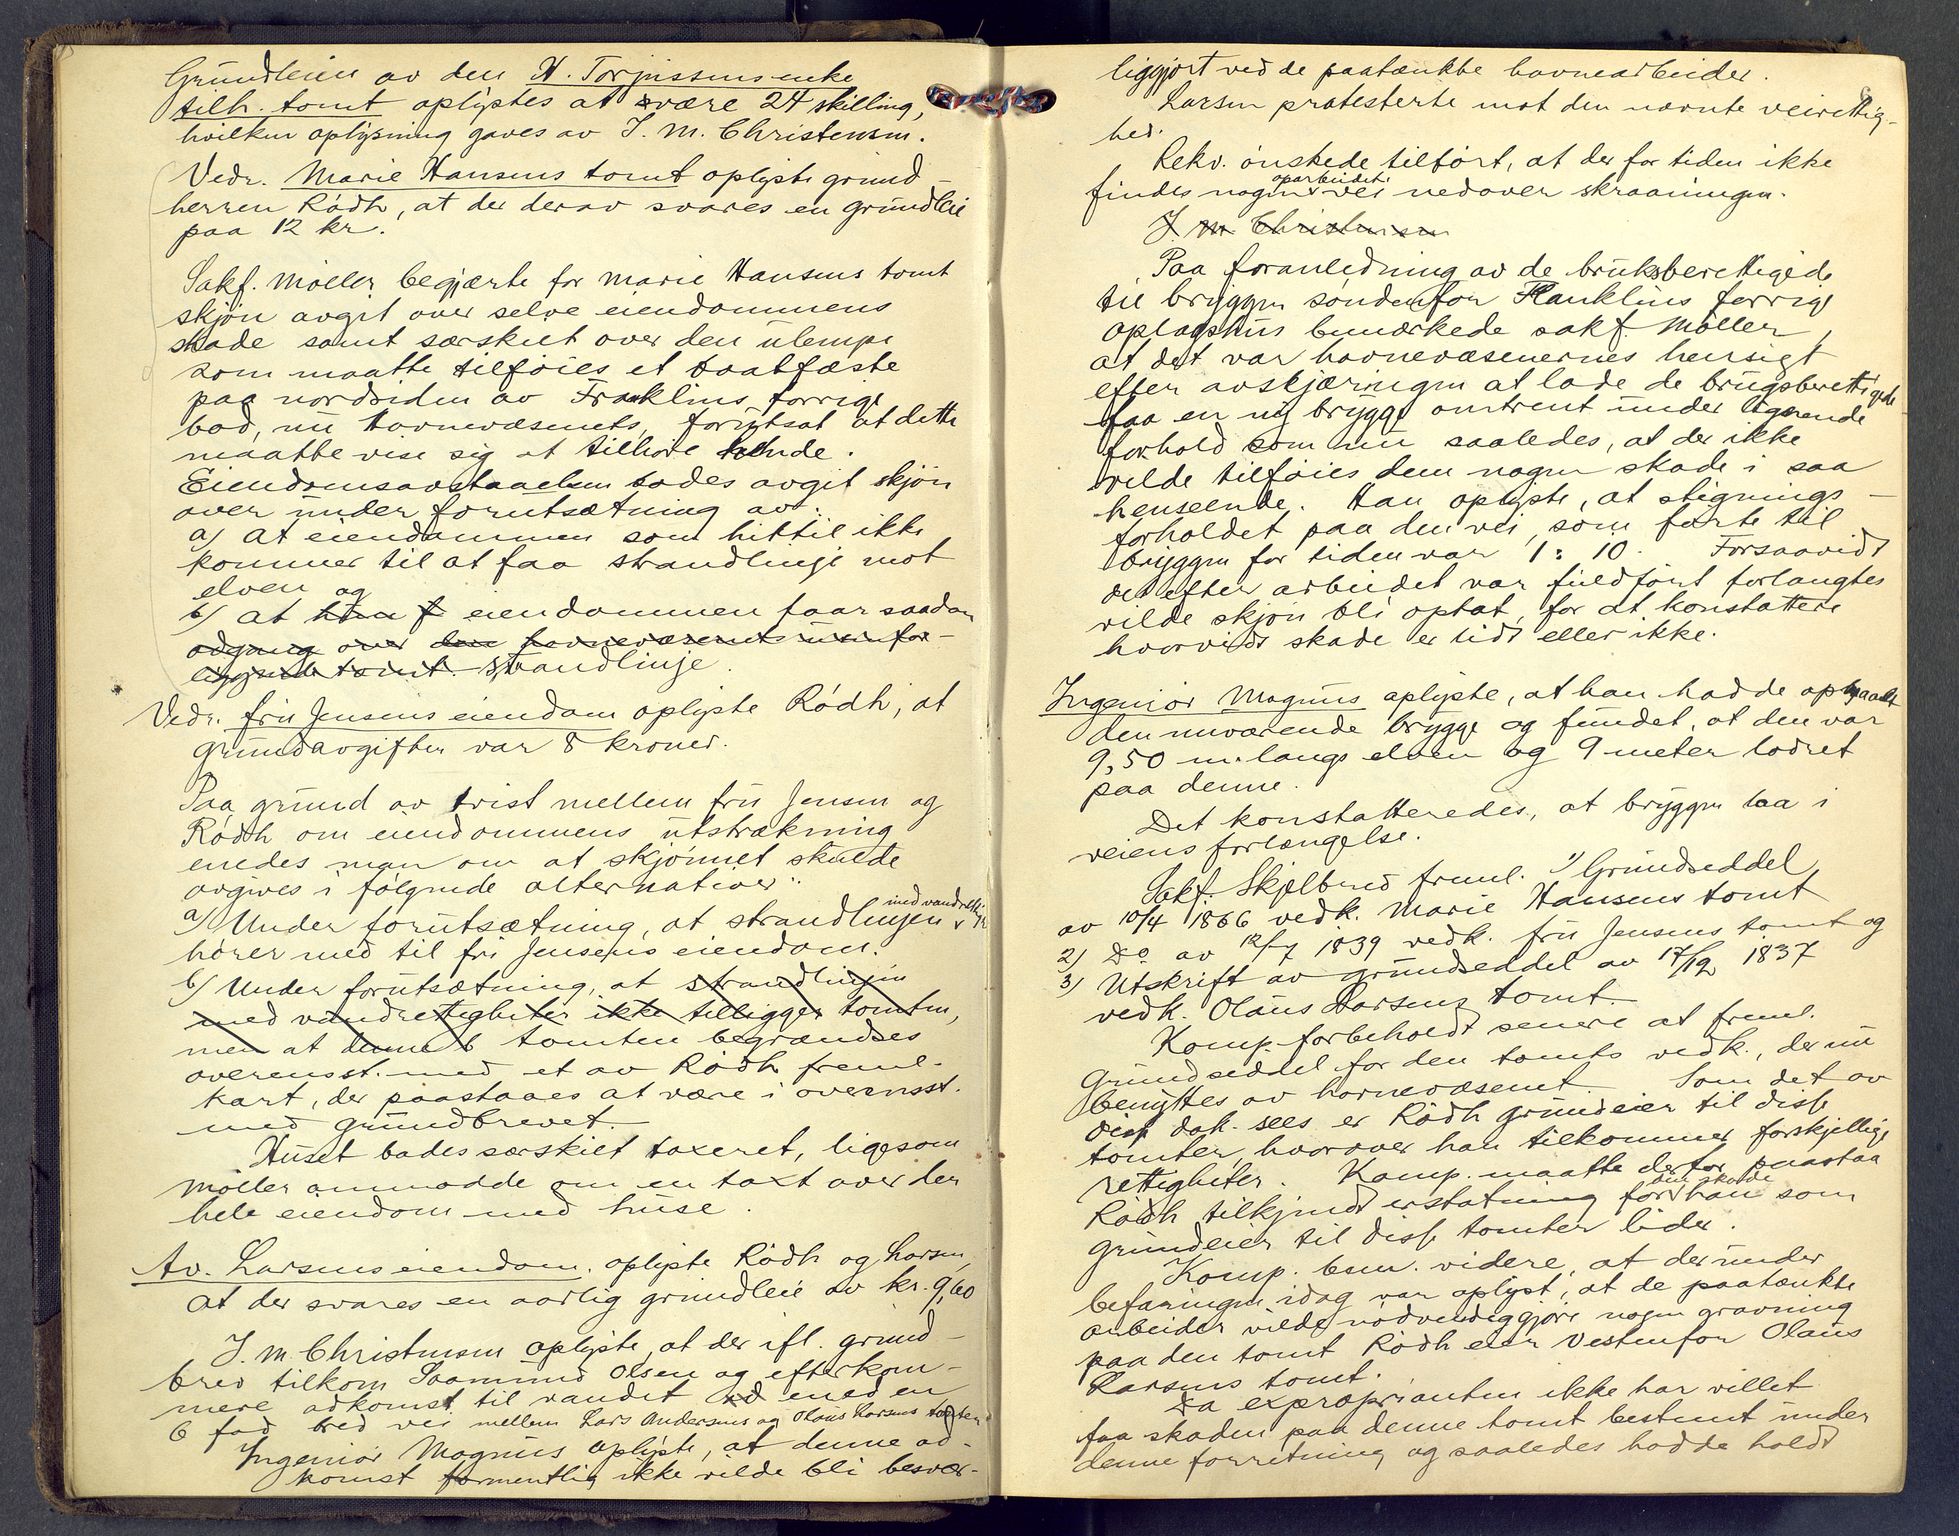 Grundleien av den H. Torjussens enke
tilh. tomt oplystes at være 24 skilling,
hvilken oplysning gaves av J. M. Christensen.
Vedr. Marie Hansens tomt oplyste grund-
herren Rödh, at der derav svares en grundleie
paa 12 kr.
Sakf. Møller begjærte for Marie Hansens tomt
skjøn avgit over selve eiendommens
skade samt særskilt over den ulempe
som maatte tilføies et baatfæste
paa nordsiden av Franklins forrige
bod, nu Havnevæsenets, forutsat at dette
maatte vise sig at tilhøre hende.
Eiendomsavstaaelsen bades avgit skjøn
over under forutsætning av:
a) At eiendommen som hittil ikke
kommer til at faa strandlinje mot
elven og
b) at hun f eiendommen faar saadan
adgang over den havnevæsenets nuenfor-
liggende tomt. strandlinje.
Vedr. fru Jensens eiendom oplyste Rödh, at
grundavgiften var 8 kroner.
Paa grund av tvist mellem fru Jensen og
Rödh om eiendommens utstrækning
enedes man om at skjønnet skulde
avgives i følgende alternativer:
a) Under forutsætning, at strandlinjen med vandrettigh.
hører med til fru Jensens eiendom.
b) Under forutsætning, at strandlinjen
med vandrettigheter ikke tilligger tomten,
men at denne b tomten begrændses
overensst. med et av Rödh freml.
kart, der paastaaes at være i overensst.
med grundbrevet.
Huset bades særskilt taxeret, ligesom
Møller anmodde om en taxt over den
hele eiendom med huse.
Av. Larsens eiendom oplyste Rödh og Larsen,
at der svares en aarlig grundleie av kr. 9,60
J. M. Christensen oplyste, at der ifl. grund-
brev tilkom Saamund Olsen og efterkom-
mere adkomst til vandet ad med en
6 fod bred vei mellem Lars Andersens og Olaus Larsens tomter
Ingeniør Magnus oplyste, at denne ad-
komst formentlig ikke vilde bli besvær-
liggjort ved de paatænkte havnearbeider.
Larsen protesterte mot den nævnte veirettig-
hed.
Rekv. ønskede tilført, at der for tiden ikke
findes nogen oparbeidet vei nedover skraaningen.
J. M. Christensen
Paa foranledning av de bruksberettigede
til bryggen søndenfor Franklins forrige
oplagshus bemærkede sakf. Møller,
at det var havnevæsenernes hensigt
efter avskjæringen at lade de brugsberettigede
faa en ny brygge omtrent under lignende
forhold som nu saaledes, at der ikke
vilde tilføies dem nogen skade i saa
henseende. Han oplyste, at stignings-
forholdet paa den vei, som førte til
bryggen for tiden var 1:10. Forsaavidt
det efter arbeidet var fuldført forlangtes
vilde skjøn bli optat, for at konstattere
hvorvidt skade er lidt eller ikke.
Ingeniør Magnus oplyste, at han hadde opmaalt
den nuværende brygge og fundet, at den var
9,50 m. langs elven og 9 meter lodret
paa denne.
Det konstatteredes, at bryggen laa i
veiens forlængelse.
Sakf. Skjelbred freml. 1) Grundseddel
av 10/4 1866 vedk. Marie Hansens tomt
2) Do av 12/7 1839 vedk. fru Jensens tomt og
3) Utskrift av grundseddel av 17/12 1837
vedk. Olaus Larsens tomt.
Komp. forbeholdt senere at freml.
grundseddel for den tomts vedk., der nu
benyttes av havnevæsenet. Som det av
disse dok. sees er Rödh grundeier til disse
tomter, hvorover han tilkommer forskjellige
rettigheter. Komp. maatte derfor paastaa
Rödh tilkjendt erstatning for den skade han som
grundeier til disse tomter lider.
Komp. bem. videre, at der under
befaringen idag var oplyst, at de paatænkte
arbeider vilde nødvendiggjøre nogen gravning
paa den tomt Rödh eier vestenfor Olaus
Larsens tomt.
Da exproprianten ikke har villet
faa skaden paa denne tomt bestemt under
denne forretning og saaledes hadde holdt